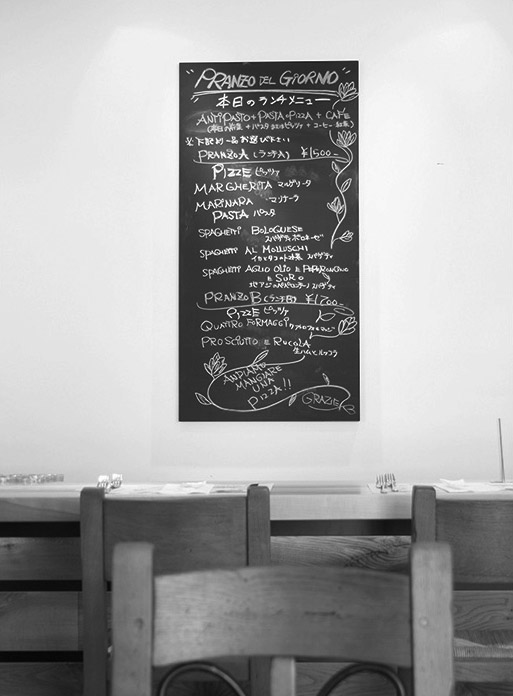 PRANZO DEL GIORNO
本日のランチメニュー
ANTIPASTO + PASTA o PIZZA + CAFÉ
(本日の前菜 + パスタ またはピッツァ + コーヒー 紅茶)
※下記より一品お選び下さい
PRANZO A (ランチA) ¥1500-
PIZZE ピッツァ
MARGHERITA マルゲリータ
MARINARA マリナーラ
PASTA パスタ
SPAGHETTI BOLOGUESE
スパゲティボロネーゼ
SPAGHETTI AL MOLLUSCHI
スパゲティ
SPAGHETTI AGLIO OLIO E PEPERONCINO
E SURO
スパゲティ
PRANZO B (ランチB) ¥1700-
PIZZE ピッツァ
QUATTRO FORMAGGI クアトロフォルマッジ
PROSCIUTTO E RUCOLA
生ハムとルッコラ
ANDIAMO
MANGIARE
UNA
PIZZA!!
GRAZIE